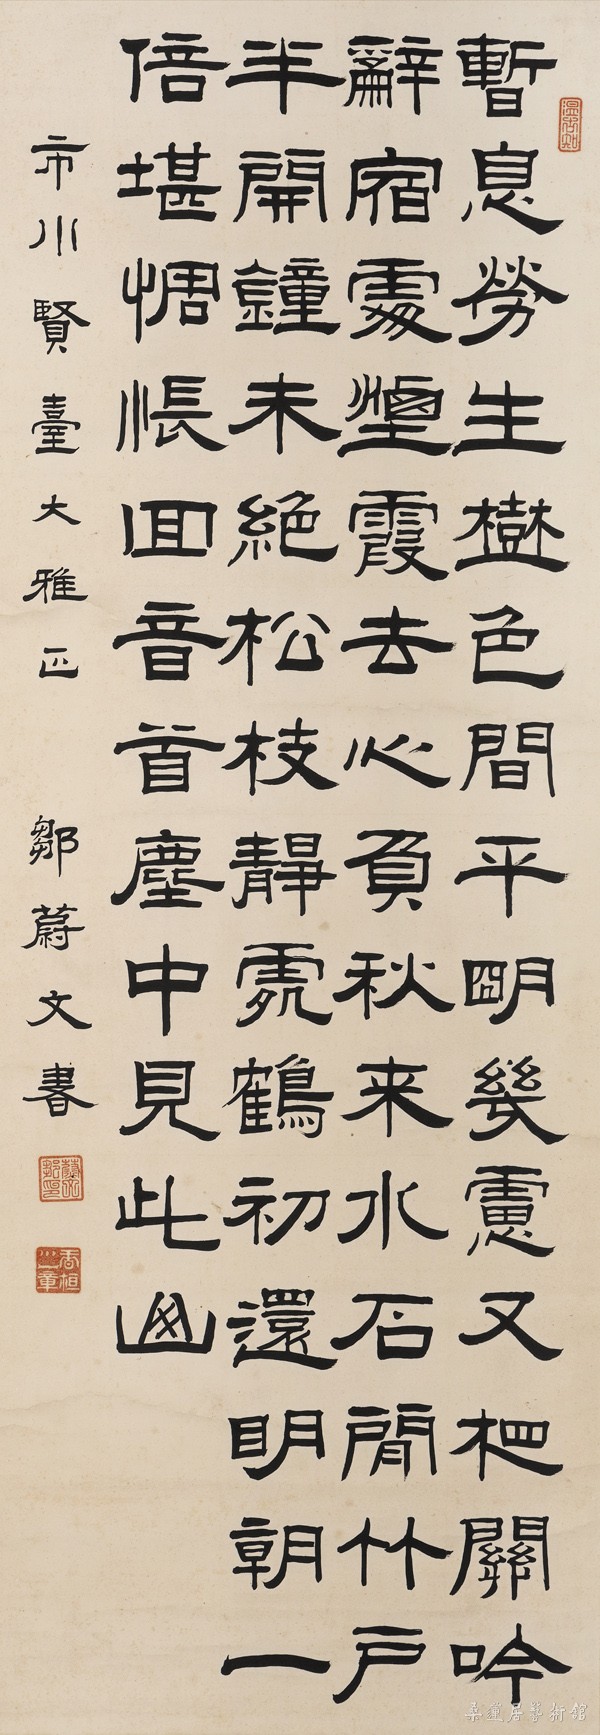 暫息勞生樹色間平明幾慮又相關吟
辭宿處煙霞去心負秋来水石閒竹戶
半開鐘未絕松枝靜霽鶴初還明朝一
倍堪惆悵回音首塵中見此山
市川賢臺大雅正 鄒蔚文書
桑蓮居藝術館